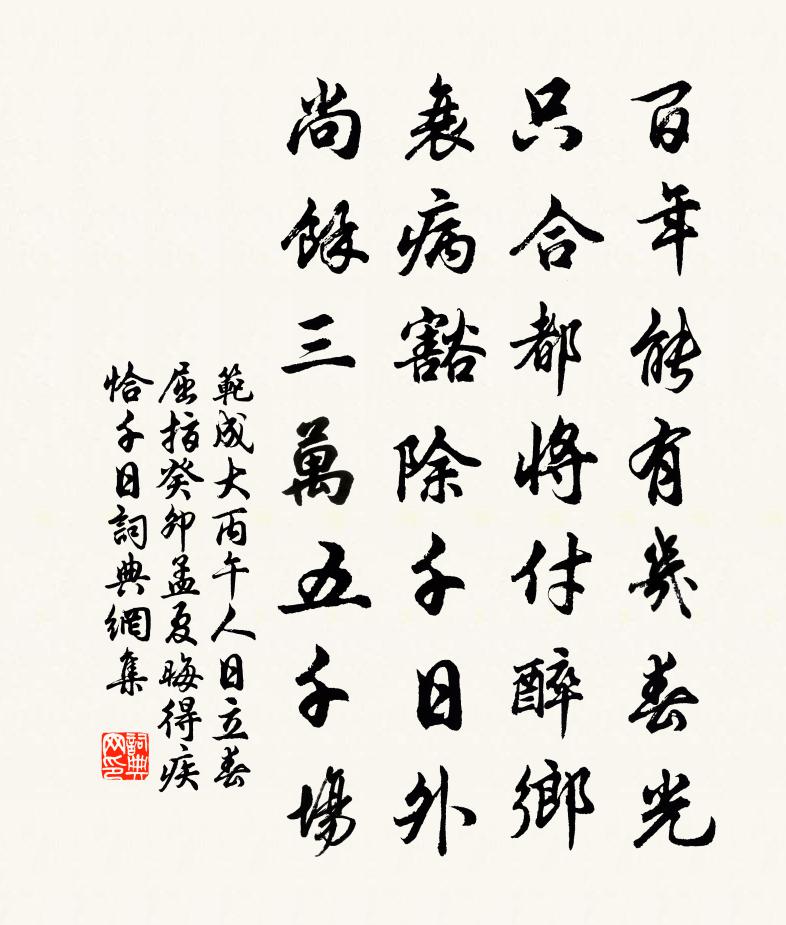 百年能有幾春光
只合都將付醉鄉
衰病豁除千日外
尚餘三萬五千場
範成大丙午人日立春
屈指癸卯孟夏晦得疾
恰千日詞典網集
詞典
网印